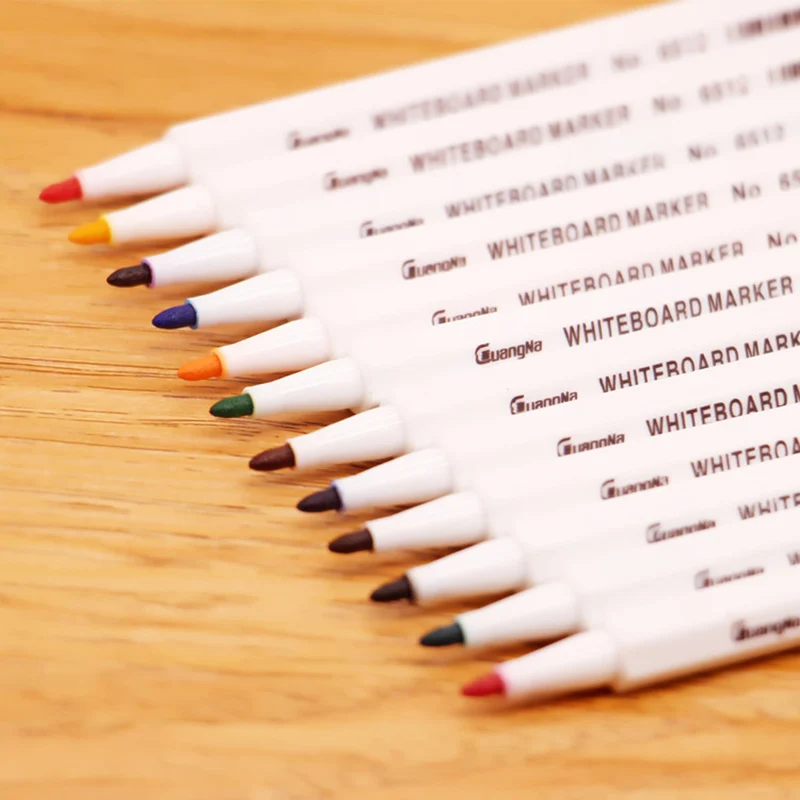 GuangNa WHITEBOARD MARKER No 6512
GuangNa WHITEBOARD MARKER No 6512
GuangNa WHITEBOARD MARKER No 6512
GuangNa WHITEBOARD MARKER No 65
GuangNa WHITEBOARD MARKER No
GuangNa WHITEBOARD MARKER
GuangNa WHITEBOARD MARK
GuangNa WHITEBOARD M
GuangNa WHITEBOA
GuangNa WHITE
GuangNa W
GuangNa